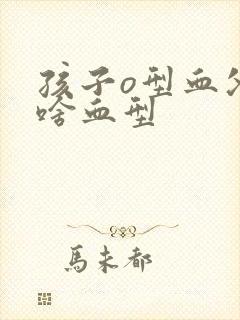 孩子o型血父
啥血型
馬未都